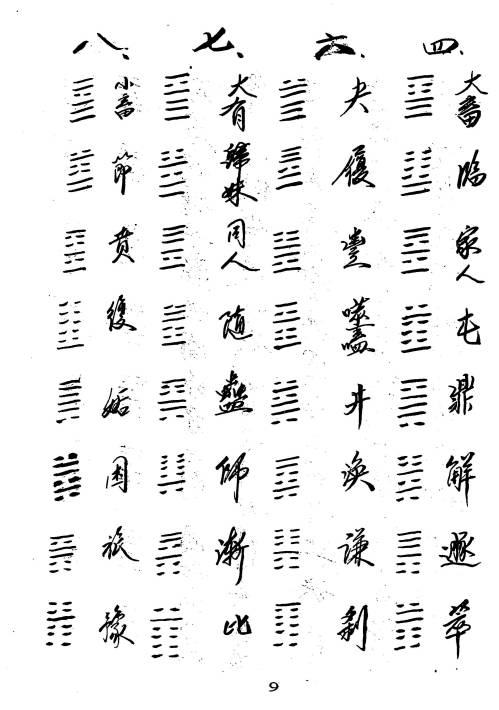 四、
大畜
臨
家人
屯
鼎
解
遯
萃
六、
夬
履
豐
噬嗑
井
渙
謙
剝
七、
大有
歸妹
同人
随
蠱
師
漸
比
八、
小畜
節
賁
復
姤
困
旅
豫
9